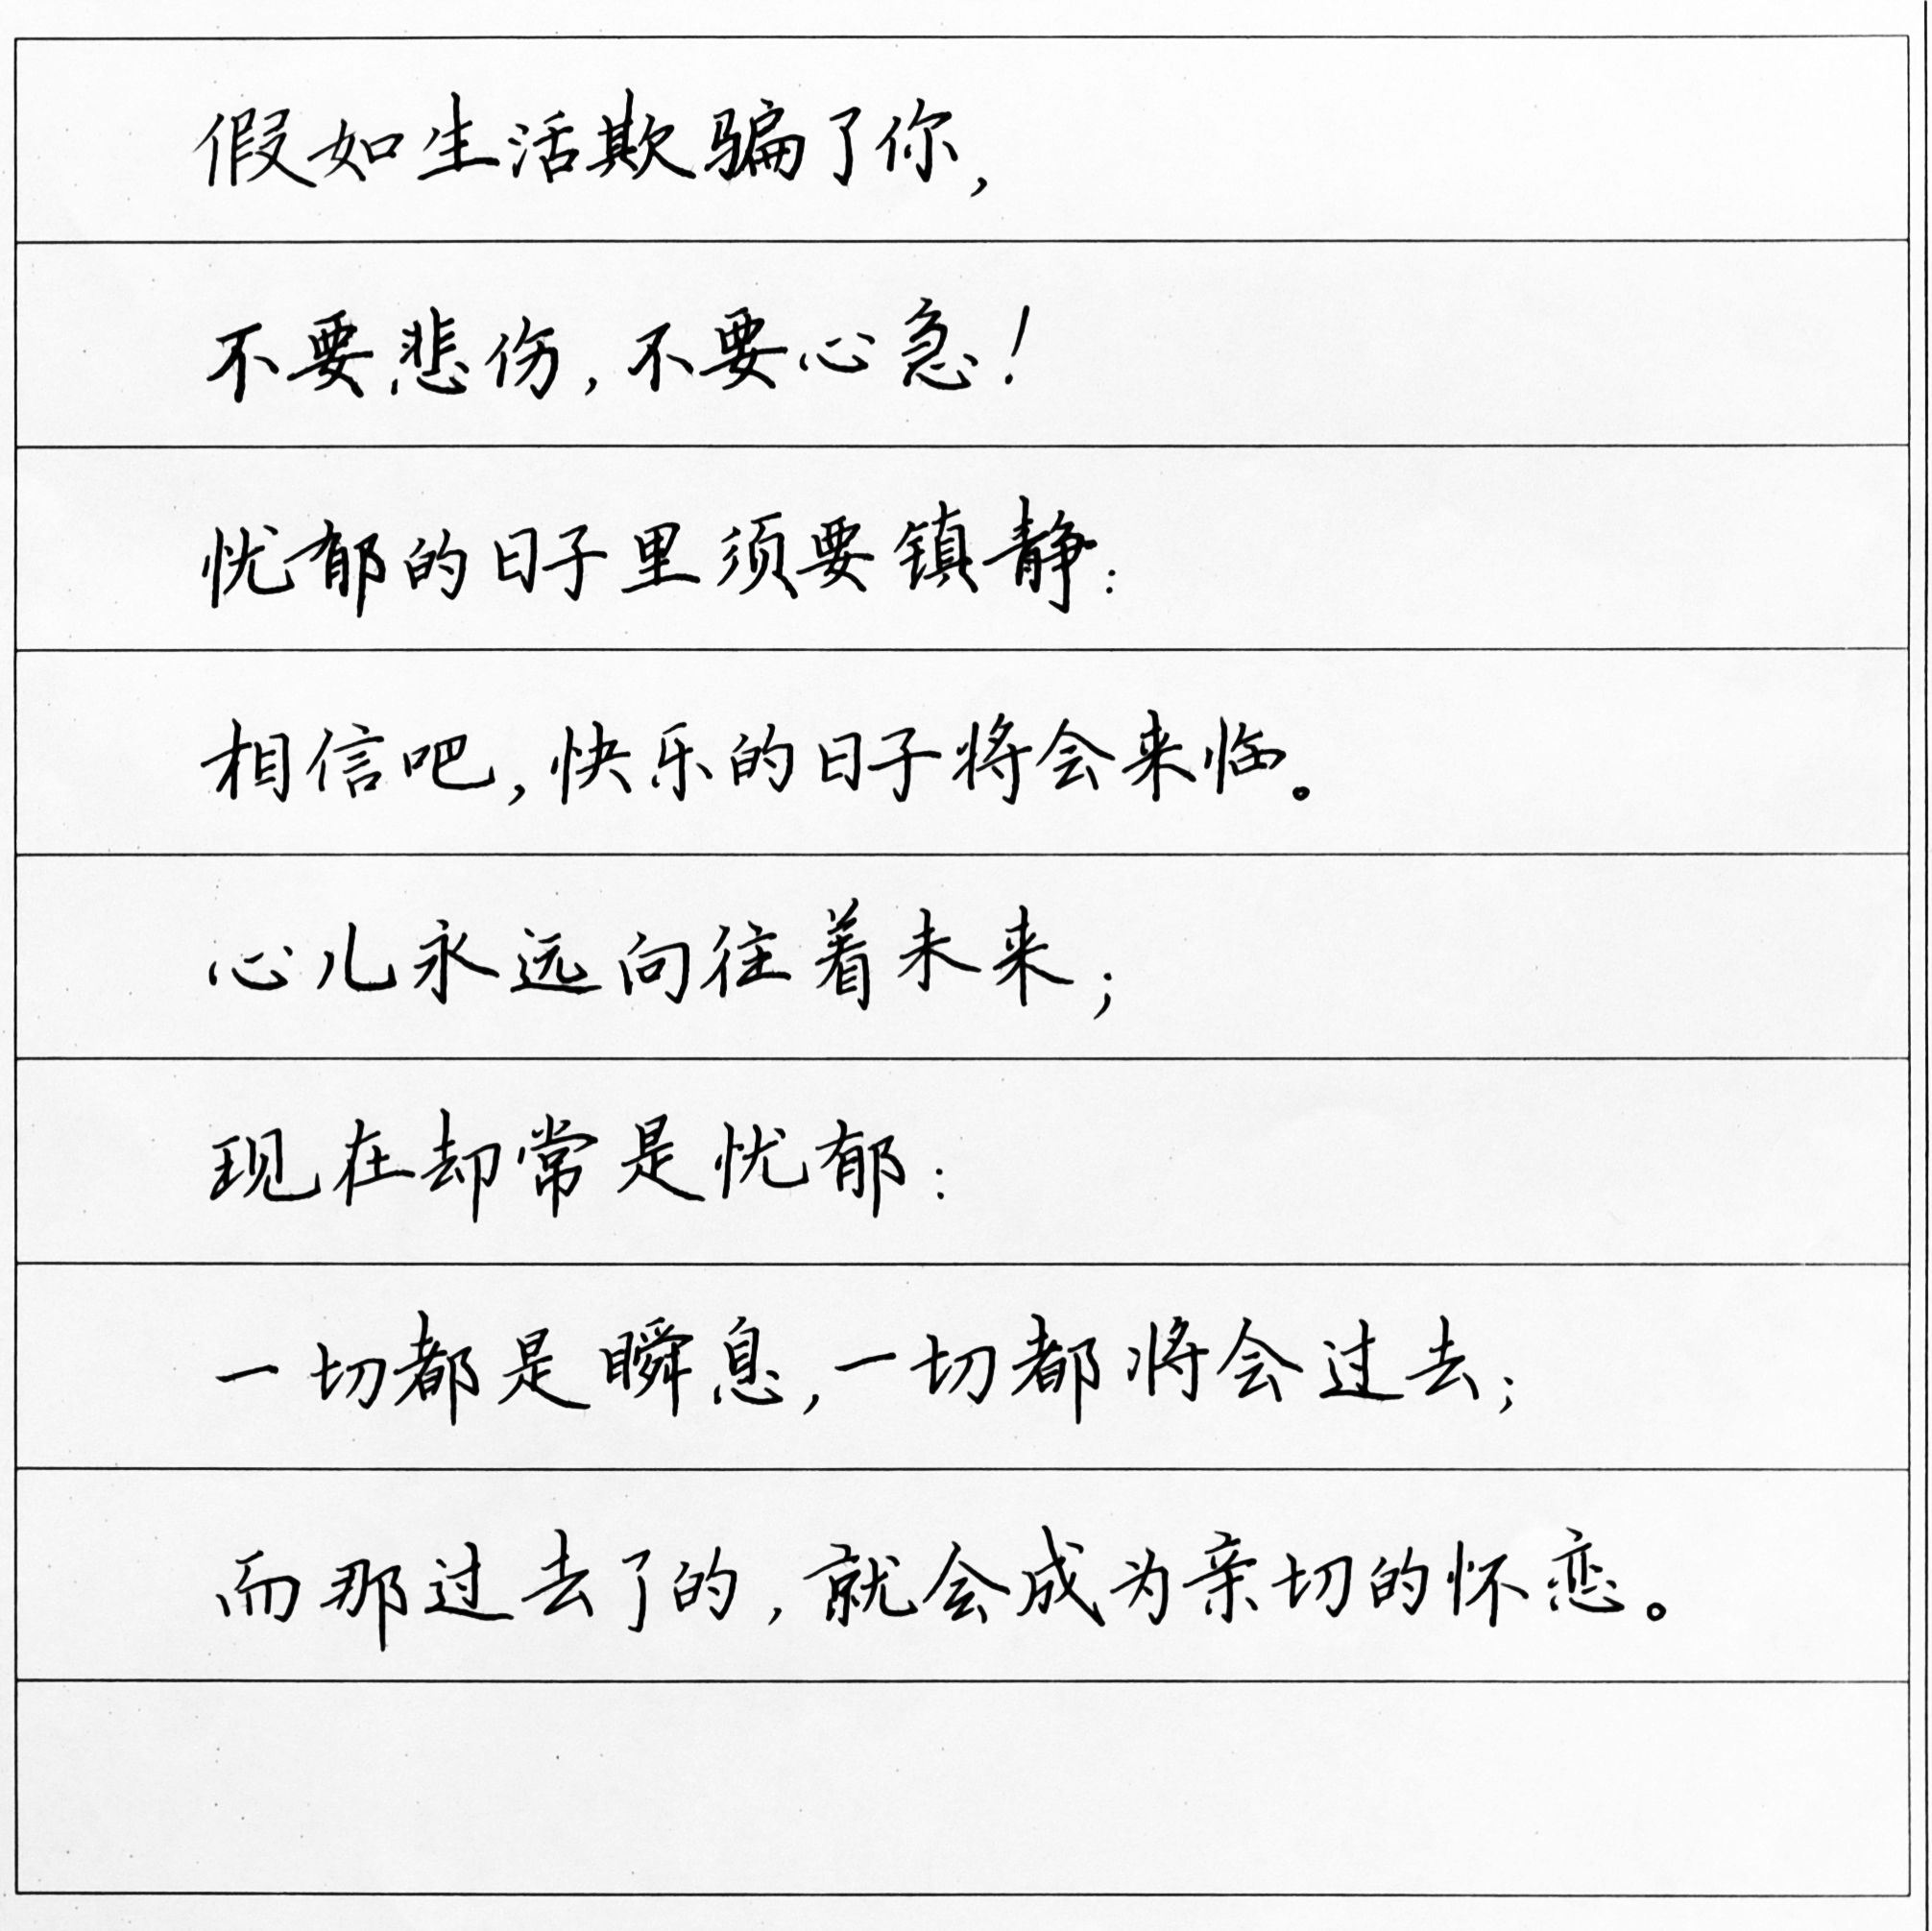 假如生活欺骗了你，
不要悲伤，不要心急！
忧郁的日子里须要镇静：
相信吧，快乐的日子将会来临。
心儿永远向往着未来；
现在却常是忧郁：
一切都是瞬息，一切都将会过去；
而那过去了的，就会成为亲切的怀恋。